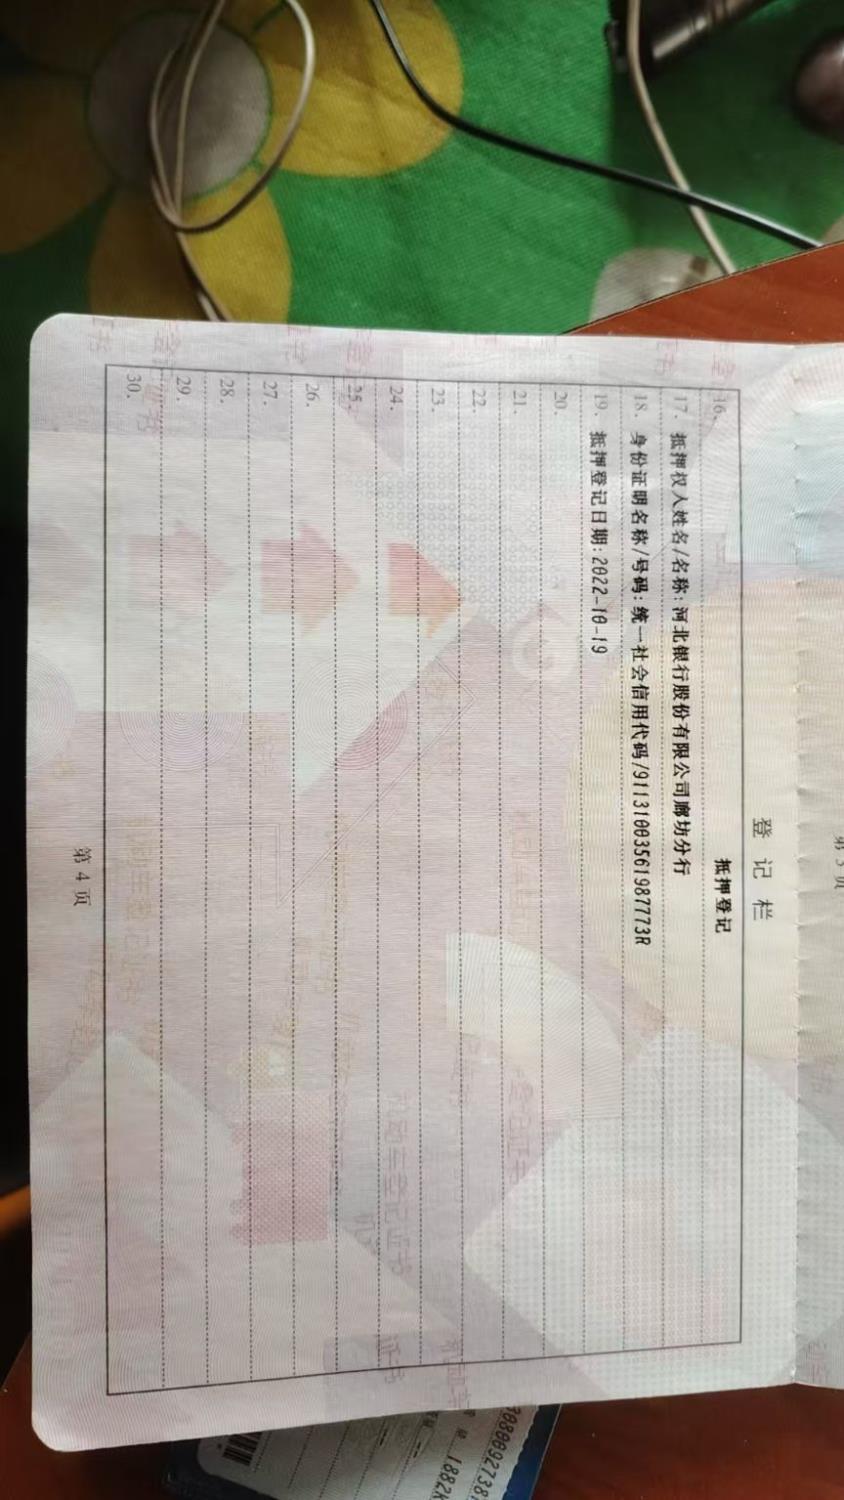 登记栏
16. 抵押登记
17. 抵押权人姓名/名称:河北银行股份有限公司廊坊分行
18. 身份证明名称/号码:统一社会信用代码/91131003561987773R
19. 抵押登记日期:2022-10-19
20.
21.
22.
23.
24.
25.
26.
27.
28.
29.
30.
第 4 页